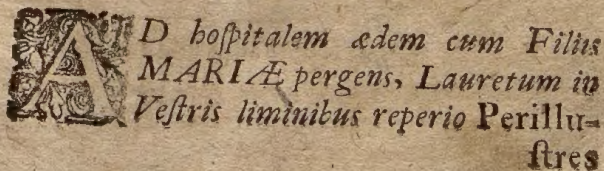 AD hoſpitalem ædem cum Filiis
MARIÆ pergens, Lauretum in
Veſtris liminibus reperio Perillu-
ſtres